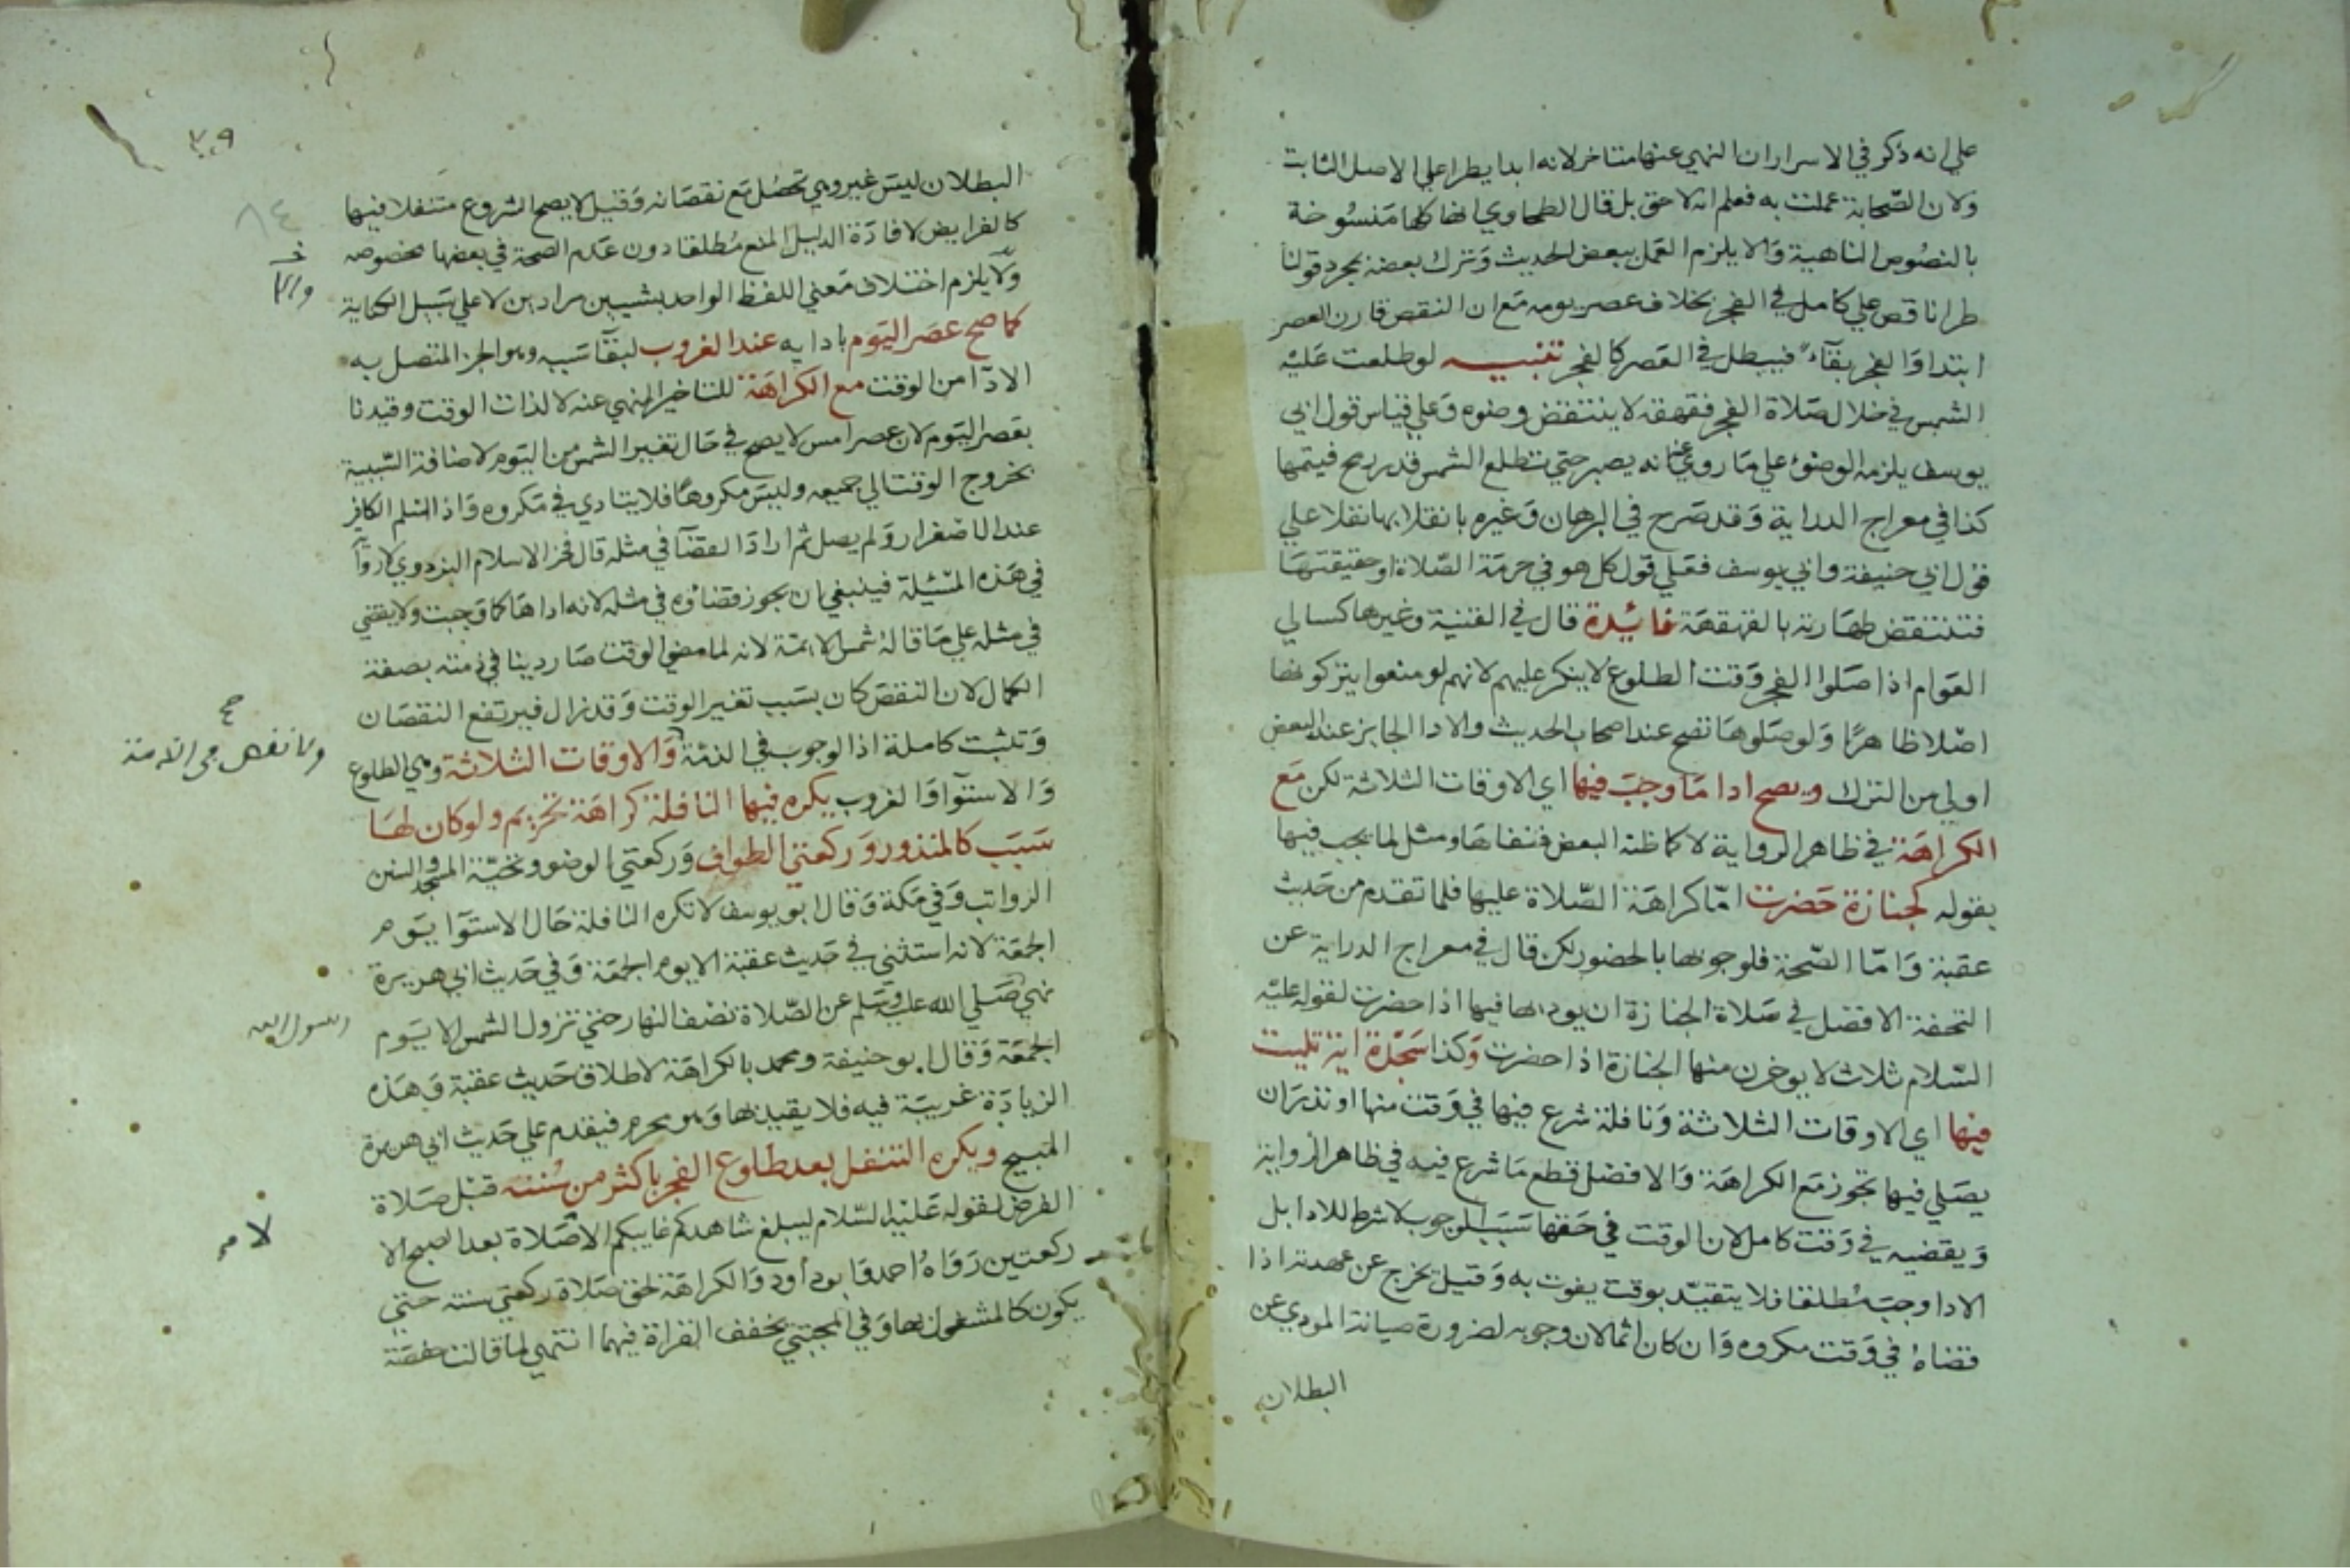 علي انه ذكر في الاسرار ان النهي عنها متاخر لانه ابدا يطرا علي الاصل الثابت
ولان الصحابة عملت به فعلم انه لاحق بل قال الطحاوي انها كلها منسوخة
بالنصوص الناهية والا يلزم العمل ببعض الحديث وترك بعضه بمجرد قولنا
طرا ناقص علي كامل في الفجر بخلاف عصر يومه مع ان النقص قارن العصر
ابتدا والفجر بقآء فيبطل في العصر كالفجر تنبيه لو طلعت عليه
الشمس في خلال صلاة الفجر فقهقه لا ينتقض وضوه وعلي قياس قول ابي
يوسف يلزمه الوضوء علي ما روي عنه انه يصبر حتي تطلع الشمس قدر رمح فيتمها
كذا في معراج الدراية وقد صرح في البرهان وغيره بانقلابها نفلا علي
قول ابي حنيفة وابي يوسف فعلي قول كل هو في حرمة الصلاة او حقيقتها
فتنتقض طهارته بالقهقهة فائدة قال في القنية وغيرها كسالي
العوام اذا صلوا الفجر وقت الطلوع لا ينكر عليهم لانهم لو منعوا يتركونها
اصلا ظاهرا ولو صلوها تصح عند اصحاب الحديث والادا الجايز عند البعض
اولي من الترك ويصح ادا ما وجب فيها اي الاوقات الثلاثة لكن مع
الكراهة في ظاهر الرواية لا كما ظنه البعض فنفاها ومثل لما يجب فيها
بقوله كجنازة حضرت اما كراهة الصلاة عليها فلما تقدم من حديث
عقبة واما الصحة فلوجوبها بالحضور لكن قال في معراج الدراية عن
التحفة الافضل في صلاة الجنازة ان يوديها فيها اذا حضرت لقوله عليه
السلام ثلاث لا يوخرن منها الجنازة اذا حضرت وكذا سجدة اية تليت
فيها اي الاوقات الثلاثة ونافلة شرع فيها في وقت منها او نذر ان
يصلي فيها تجوز مع الكراهة والافضل قطع ما شرع فيه في ظاهر الرواية
ويقضيه في وقت كامل لان الوقت في حقها سبب الوجوب لا شرط للادا بل
الادا وجب مطلقا فلا يتقيد بوقت يفوت به وقيل يخرج عن عهدته اذا
قضاه في وقت مكروه وان كان اثما لان وجوبه لضرورة صيانة المودي عن
البطلان
٣٠٩
٨٤
البطلان ليس غير وهي تحصل مع نقصانه وقيل لا يصح الشروع متنفلا فيها
كالفرايض لافادة الدليل المنع مطلقا دون عدم الصحة في بعضها بخصوصه
ولا يلزم اختلاف معني اللفظ الواحد بشيين مرادين لا علي سبيل الكناية
والا
كما صح عصر اليوم بادايه عند الغروب لبقآ سببه وهو الجز المتصل به
الادآ من الوقت مع الكراهة للتاخير المنهي عنه لا لذات الوقت وقيدنا
بعصر اليوم لان عصر امس لا يصح في حال تغير الشمس من اليوم لاضافة السببية
بخروج الوقت الي جميعه وليس مكروها فلا يتادي في مكروه واذا اسلم الكافر
عند الاصفرار ولم يصل ثم اراد القضآ في مثله قال فخر الاسلام البزدوي لا روآ
في هذه المسئلة فينبغي ان يجوز قضاؤه في مثله لانه اداها كما وجبت ولا يقضي
في مثله علي ما قاله شمس الائمة لانه لما مضي الوقت صار دينا في ذمته بصفة
الكمال لان النقص كان بسبب تغير الوقت وقد زال فيرتفع النقصان
وتثبت كاملة اذ الوجوب في الذمة والاوقات الثلاثة وهي الطلوع
ولا نقص في الذمة
صح
والاستوآ والغروب يكره فيها النافلة كراهة تحريم ولو كان لها
سبب كالمنذور وركعتي الطواف وركعتي الوضو وتحية المسجد والسنن
الرواتب وفي مكة وقال ابو يوسف لا تكره النافلة حال الاستوآ يوم
الجمعة لانه استثني في حديث عقبة الا يوم الجمعة وفي حديث ابي هريرة
نهي صلي الله عليه وسلم عن الصلاة نصف النهار حتي تزول الشمس الا يوم
رسول الله
الجمعة وقال ابو حنيفة ومحمد بالكراهة لاطلاق حديث عقبة وهذه
الزيادة غريبة فيه فلا يقيد بها وهو محرم فيقدم علي حديث ابي هريرة
المبيح ويكره التنفل بعد طلوع الفجر باكثر من سنته قبل صلاة
الفرض لقوله عليه السلام ليبلغ شاهدكم غايبكم الا لا صلاة بعد الصبح الا
ركعتين رواه احمد وابو داود والكراهة لحق صلاة ركعتي سنته حتي
يكون كالمشغول بها وفي المجتبي يخفف القراة فيهما انتهي لما قالت حفصة